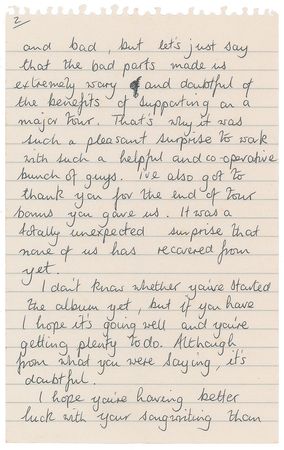 2
and bad, but let's just say
that the bad parts made us
extremely wary and doubtful of
the benefits of supporting on a
major tour. That's why it was
such a pleasant surprise to work
with such a helpful and co-operative
bunch of guys. I've also got to
thank you for the end of tour
bonus you gave us. It was a
totally unexpected surprise that
none of us has recovered from
yet.
I don't know whether you've started
the album yet, but if you have
I hope it's going well and you're
getting plenty to do. Although
from what you were saying, it's
doubtful.
I hope you're having better
luck with your songwriting than